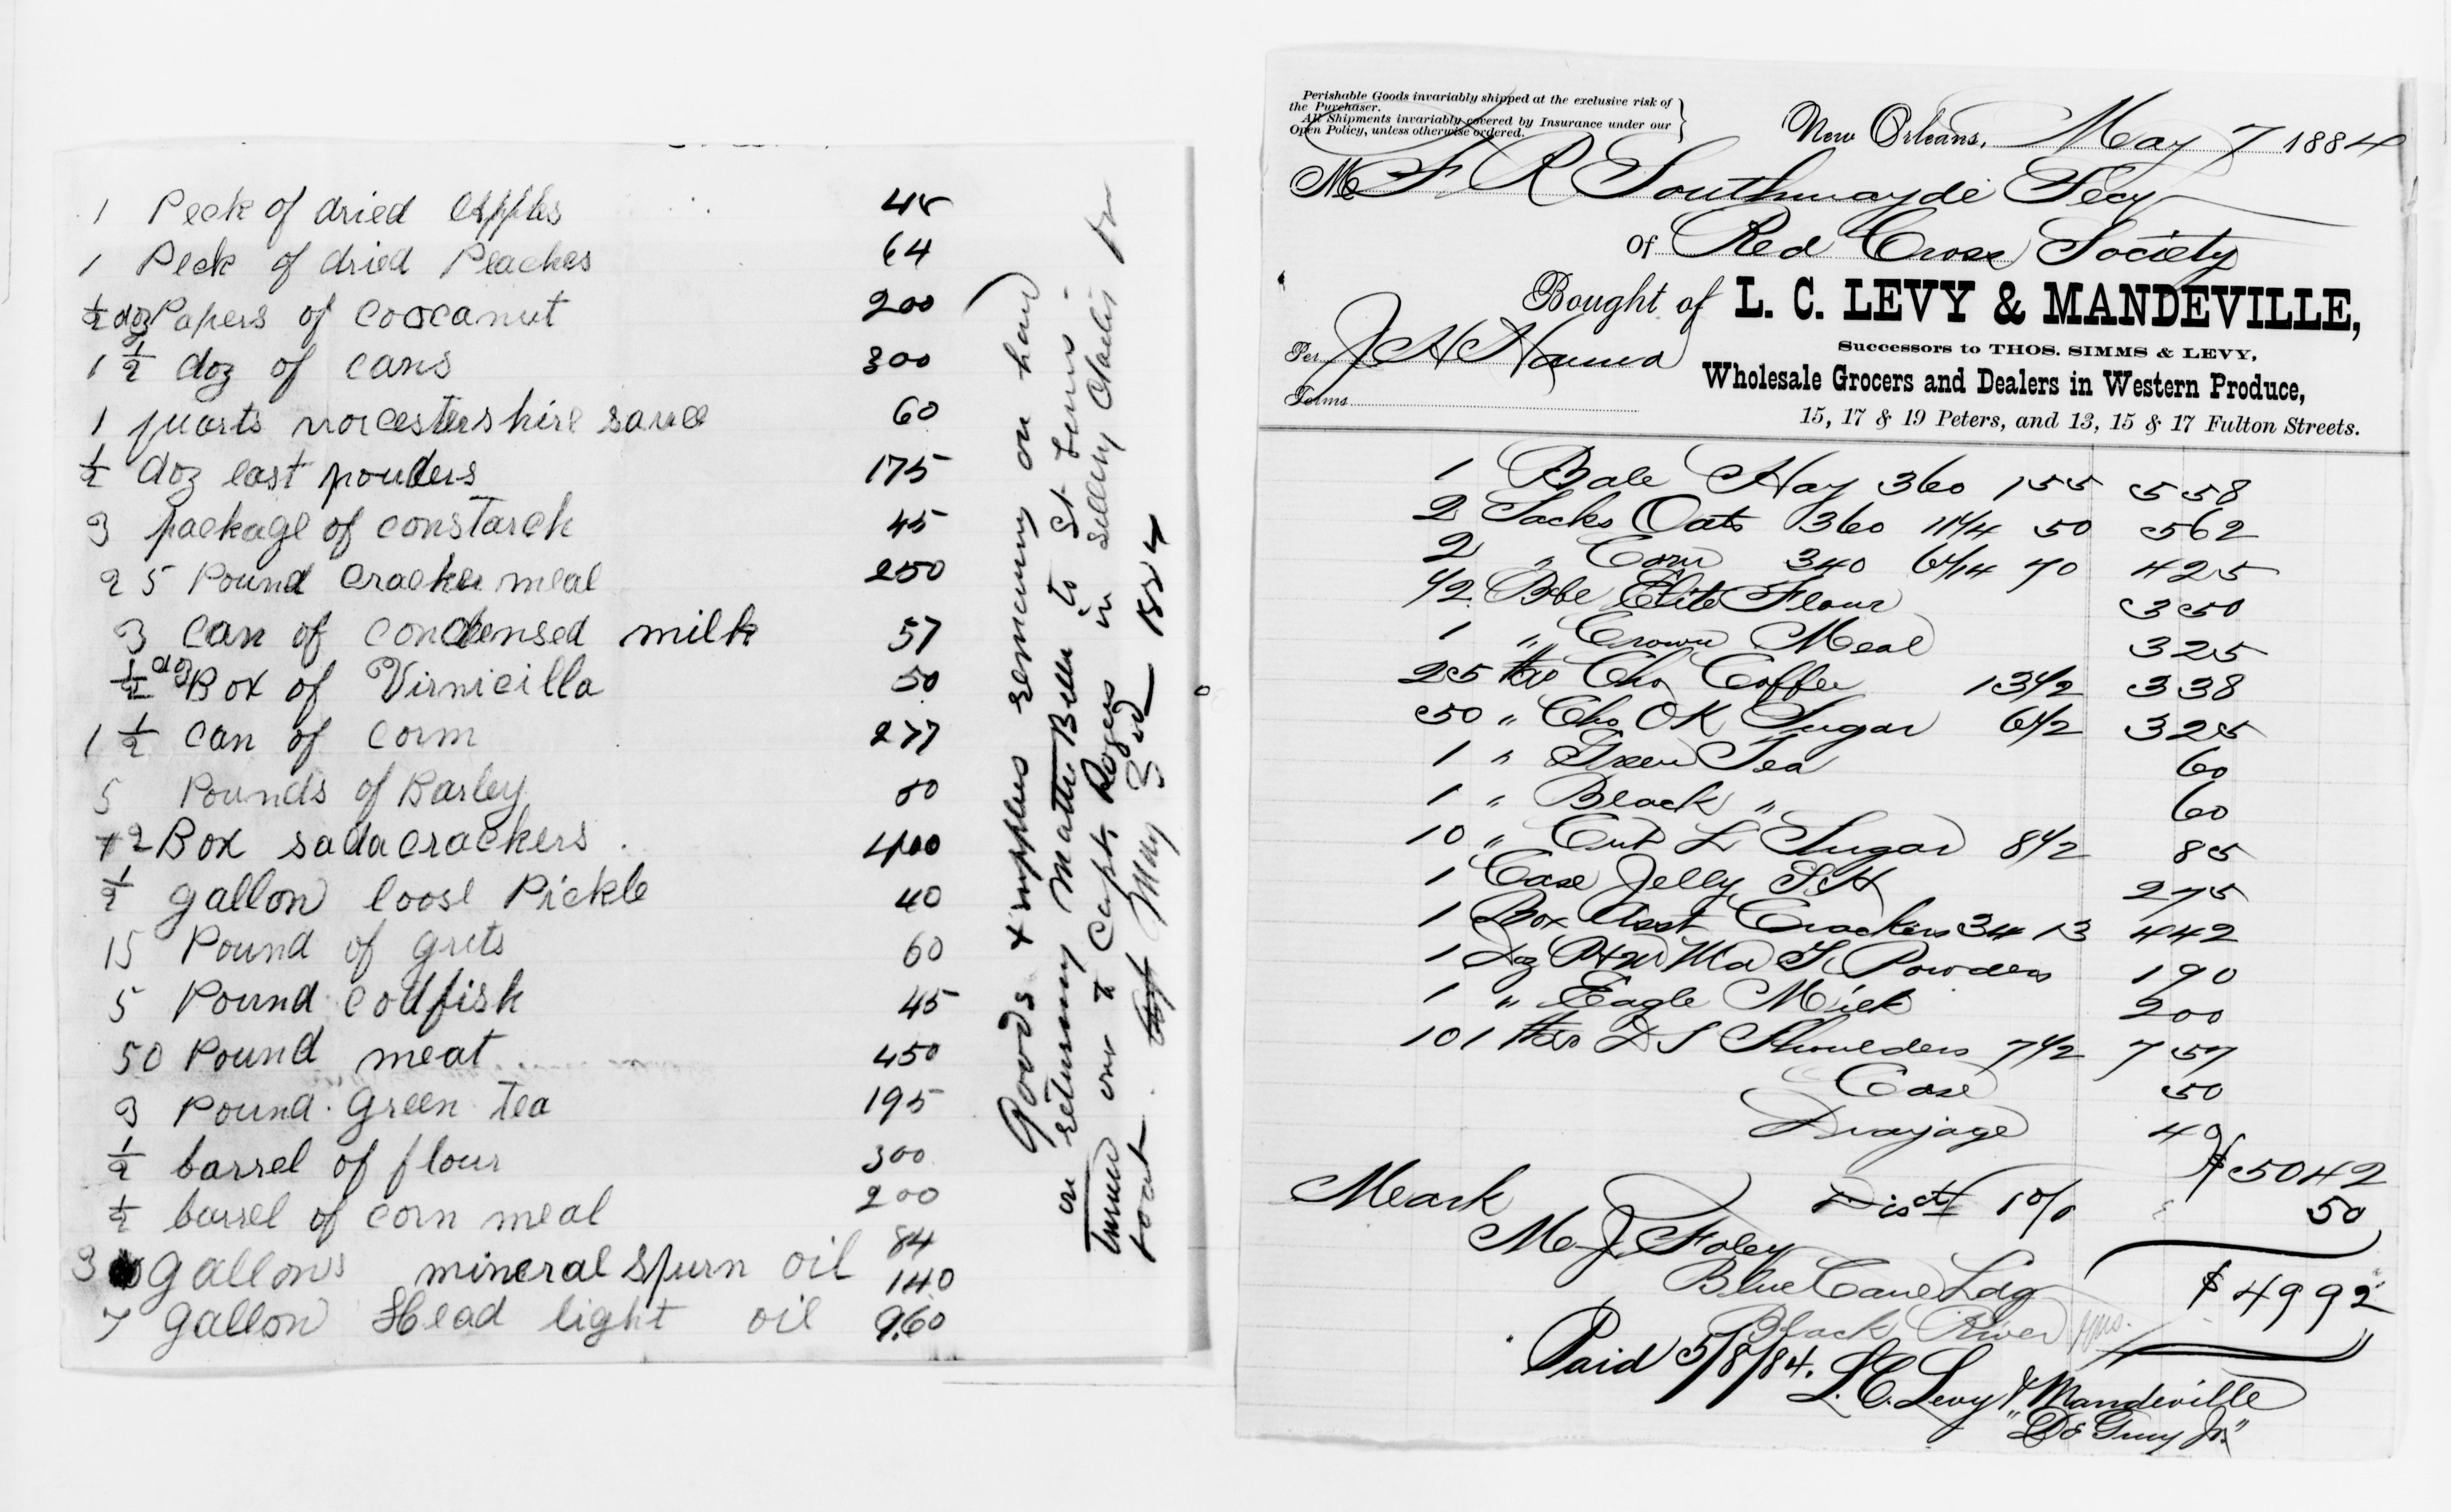 1 Peck of dried Apples 45
1 Peck of dried Peaches 64
½ doz Papers of Coocanut 200
1 ½ doz of cans 300
1 quarts worcestershire sauce 60
½ doz east pouders 175
3 package of constarch 45
25 Pound Cracker meal 250
3 Can of Condensed milk 57
½ doz Box of Virnicilla 50
1 ½ can of corm 277
5 Pounds of Barley
Box sadacrackers 400
½ gallon loose Pickle 40
15 Pound of grits 60
5 Pound codfish 45
50 Pound meat 450
3 Pound Green tea 195
½ barrel of flour 300
½ barrel of corn meal 200
84
3 gallons mineral spurn oil 140
7 gallon Head light oil 9.60
Goods & supplies remaining on hand
on returning Mattie Belle to St Louis -
Turned over to Capt. Rogers in
boat. May 3rd 1884
Perishable Goods invariably shipped at the exclusive risk of
the Purchaser.
All Shipments invariably covered by Insurance under our
Open Policy, unless otherwise ordered.
New Orleans, May 7 1884
M F R Southmayde Secy
Of Red Cross Society
Bought of L. C. LEVY & MANDEVILLE,
Successors to THOS. SIMMS & LEVY,
Per J H Hanna
Wholesale Grocers and Dealers in Western Produce,
Terms
15, 17 & 19 Peters, and 13, 15 & 17 Fulton Streets.
1 Bale Hay 360 155 558
2 Sacks Oats 360 11¼ 50 562
2 " Corn 340 6/14 70 425
½ Bbl Elite Flour 350
1 " Crown Meal 325
25 lbs Cho Coffee 13½ 338
50 " Cho OK Sugar 6½ 325
1 " Green Tea 60
1 " Black " 60
10 " Cut L Sugar 8½ 85
1 Case Jelly 275
1 Box Asst Crackers 34 13 442
1 Doz Powders 190
1 " Eagle Milk 200
101 lbs D S Shoulders 7½ 757
Case 50
Drayage 40
$5042
Meark Disct 1% 50
M J Foley
Blue Cane Ldg
$4992
Black River
Paid 5/8/84. L. C. Levy & Mandeville